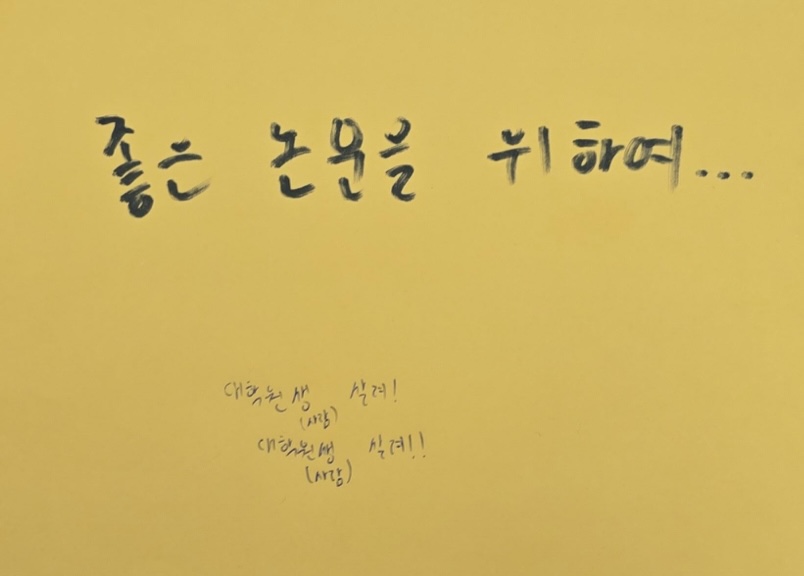 좋은 논문을 위하여...
대학원생 살려!
(사람)
대학원생 살려!!
(사람)